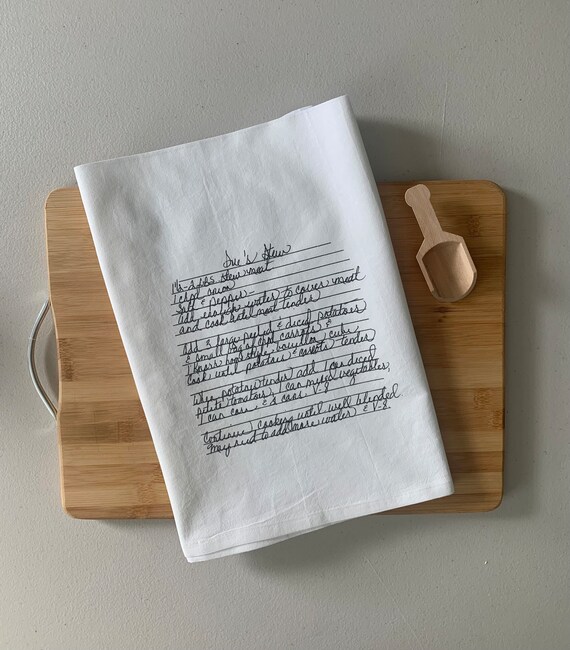 Sue's Stew
1½-2 lbs stew meat
1 chpd onion
Salt & Pepper
Add enough water to cover meat
and cook until meat tender
Add 4 large peeled & diced potatoes
& small bag of chpd carrots &
1 Knorr homestyle bouillon cube
Cook until potatoes & carrots tender
When potatoes tender add 1 can diced
petite tomatoes, 1 can mixed vegetables,
1 can corn & 2 cans V-8
Continue cooking until well blended
May need to add more water & V-8